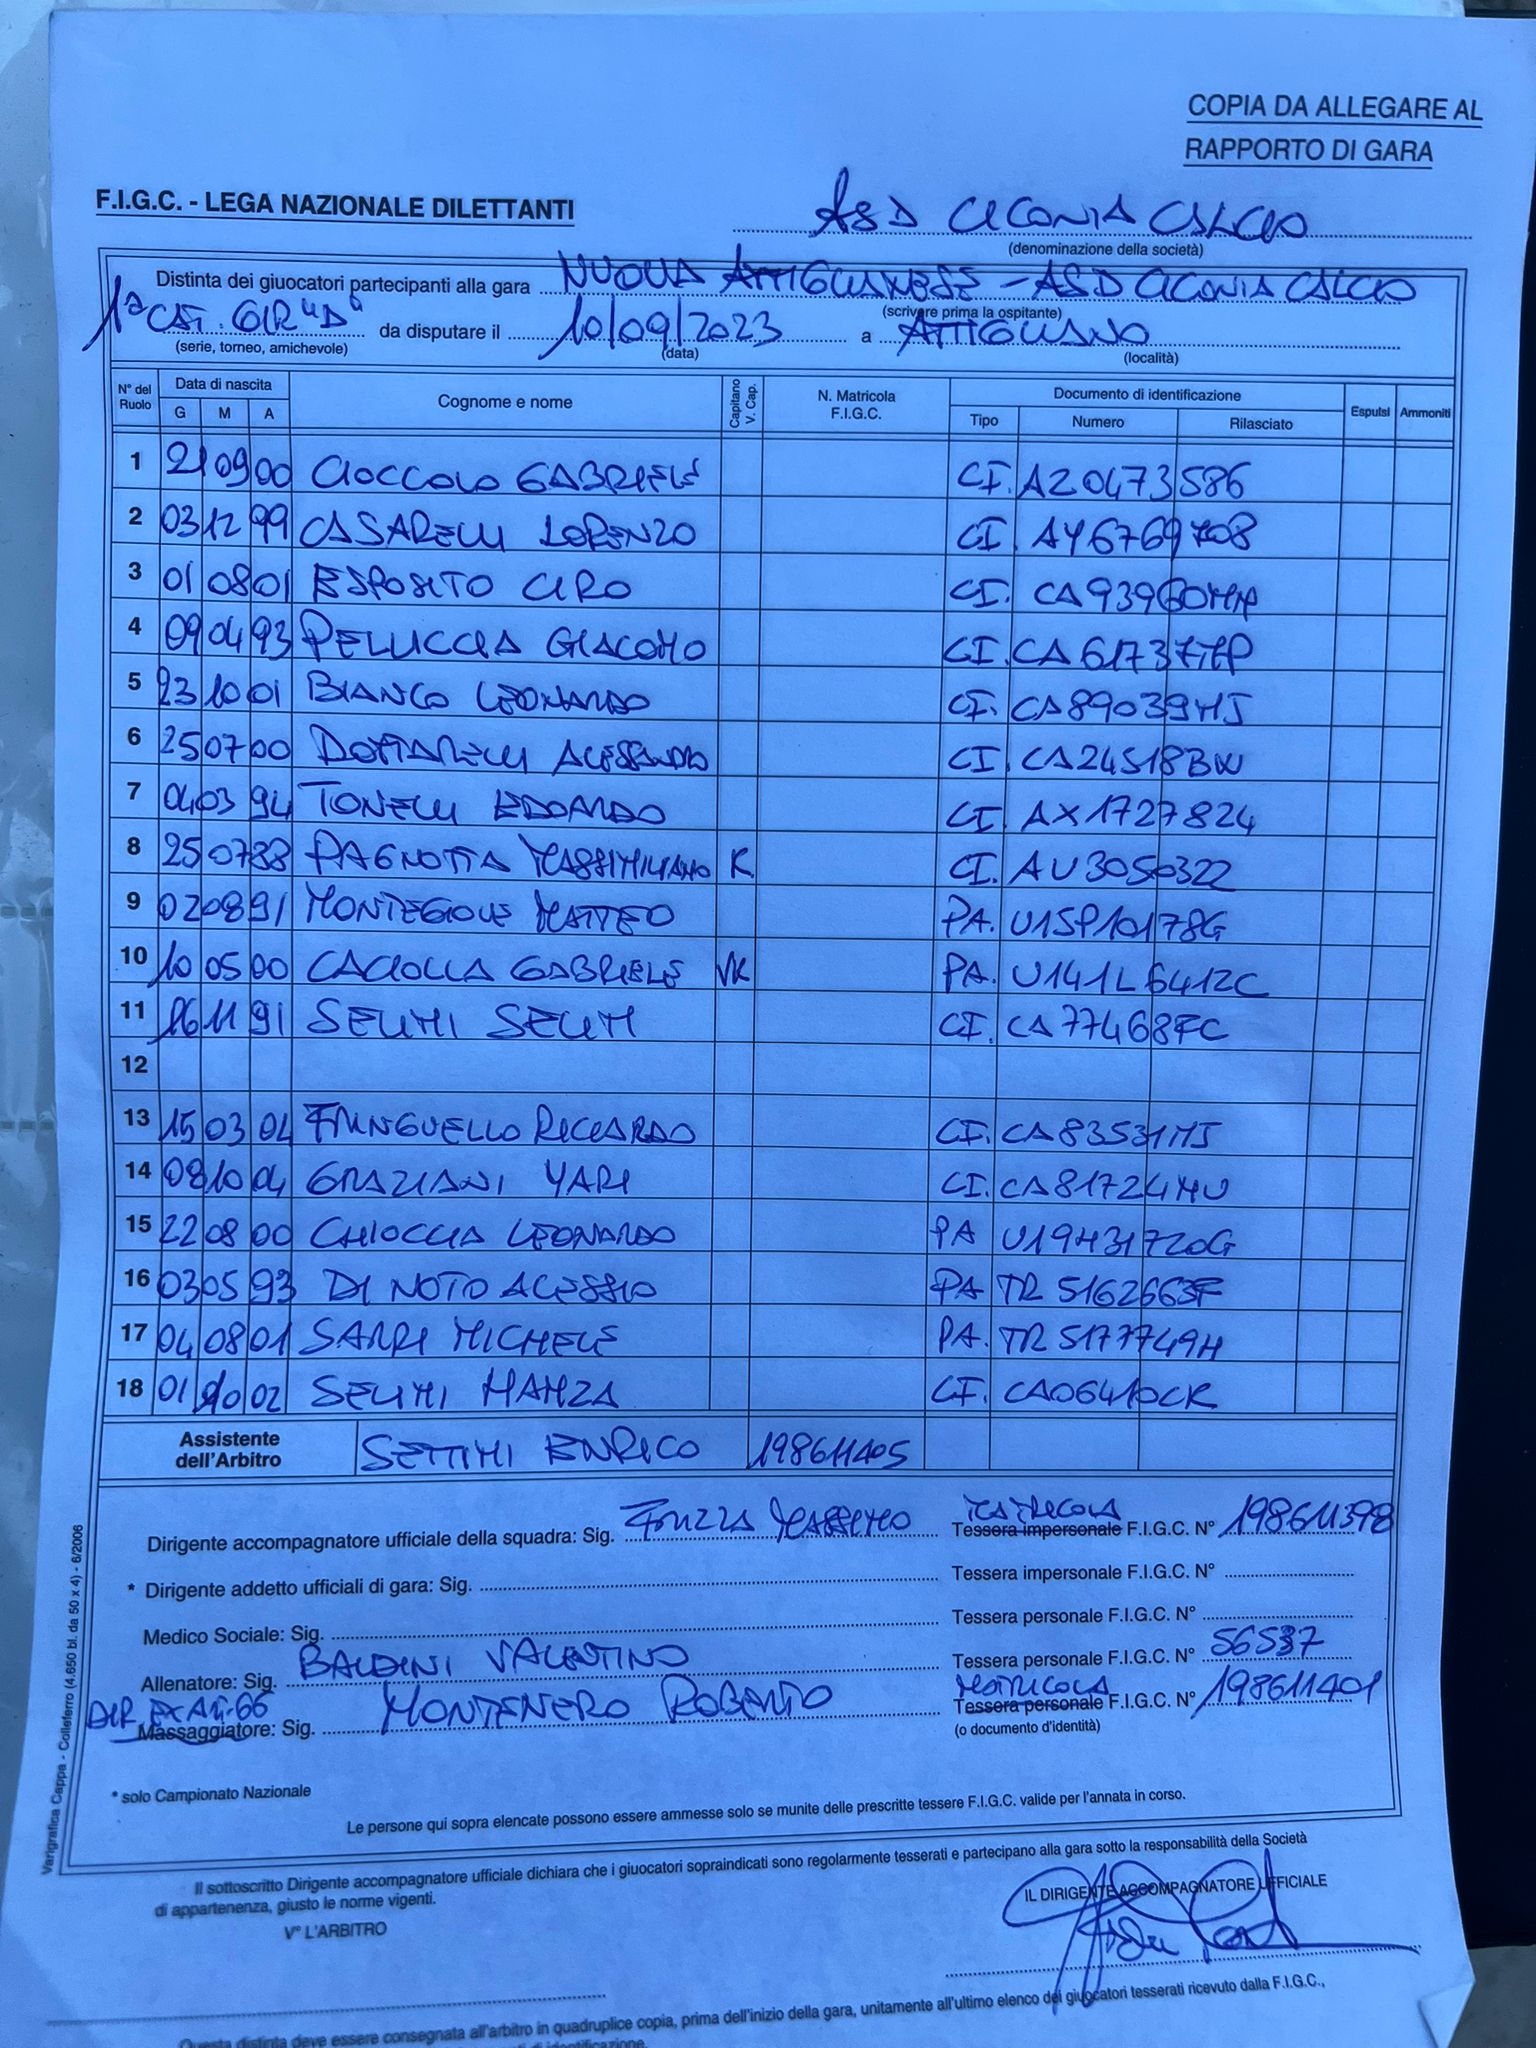 COPIA DA ALLEGARE AL
RAPPORTO DI GARA
F.I.G.C. - LEGA NAZIONALE DILETTANTI
ASD CICONIA CALCIO
(denominazione della società)
Distinta dei giuocatori partecipanti alla gara NUOVA ATTIGLIANESE - ASD CICONIA CALCIO
(scrivere prima la ospitante)
1ª CAT. GIR "D" da disputare il 10/09/2023 a ATTIGLIANO
(serie, torneo, amichevole) (data) (località)
N° del Ruolo Data di nascita G M A Cognome e nome Capitano V. Cap. N. Matricola F.I.G.C. Documento di identificazione Tipo Numero Rilasciato Espulsi Ammoniti
1 21 09 00 CIOCCOLO GABRIELE CI. AZ0473586
2 03 12 99 CASARELLI LORENZO CI. AY6769708
3 01 08 01 ESPOSITO CIRO CI. CA93960MA
4 09 04 93 PELUCCIA GIACOMO CI. CA61737
5 23 10 01 BIANCO LEONARDO CI. CA89039MJ
6 25 07 00 DOTTARELLI ALESSANDRO CI. CA24518BW
7 04 03 94 TONELLI EDOARDO CI. AX1727824
8 25 07 88 PAGNOTTA MASSIMILIANO K. CI. AU3050322
9 02 08 91 MONTEGIOVE MATTEO PA. U15P10178G
10 10 05 00 CACIOLLA GABRIELE VK PA. U141L6412C
11 16 11 91 SELIMI SELIM CI. CA77468FC
12
13 15 03 04 FRINGUELLO RICCARDO CI. CA83531MJ
14 08 10 04 GRAZIANI YARI CI. CA81724MU
15 22 08 00 CHIOCCIA LEONARDO PA U19431720G
16 03 05 93 DI NOTO ALESSIO PA TR5162663F
17 04 08 01 SARRI MICHELE PA. TR5177749H
18 01 10 02 SELIMI HAMZA CI. CA06410CR
Assistente dell'Arbitro SETTIMI ENRICO 198611405
Dirigente accompagnatore ufficiale della squadra: Sig. FRIZZA MASSIMO MATRICOLA Tessera impersonale F.I.G.C. N° 198611398
* Dirigente addetto ufficiali di gara: Sig. Tessera impersonale F.I.G.C. N°
Medico Sociale: Sig. Tessera personale F.I.G.C. N°
Allenatore: Sig. BALDINI VALENTINO Tessera personale F.I.G.C. N° 56537
DIR. EX Art. 66 Massaggiatore: Sig. MONTENERO ROBERTO MATRICOLA Tessera personale F.I.G.C. N° 198611401
(o documento d'identità)
* solo Campionato Nazionale
Le persone qui sopra elencate possono essere ammesse solo se munite delle prescritte tessere F.I.G.C. valide per l'annata in corso.
Il sottoscritto Dirigente accompagnatore ufficiale dichiara che i giuocatori sopraindicati sono regolarmente tesserati e partecipano alla gara sotto la responsabilità della Società
di appartenenza, giusto le norme vigenti.
V° L'ARBITRO
IL DIRIGENTE ACCOMPAGNATORE UFFICIALE
Questa distinta deve essere consegnata all'arbitro in quadruplice copia, prima dell'inizio della gara, unitamente all'ultimo elenco dei giuocatori tesserati ricevuto dalla F.I.G.C.,
di identificazione.
Varigrafica Cappa - Colleferro (4.650 bl. da 50 x 4) - 6/2006